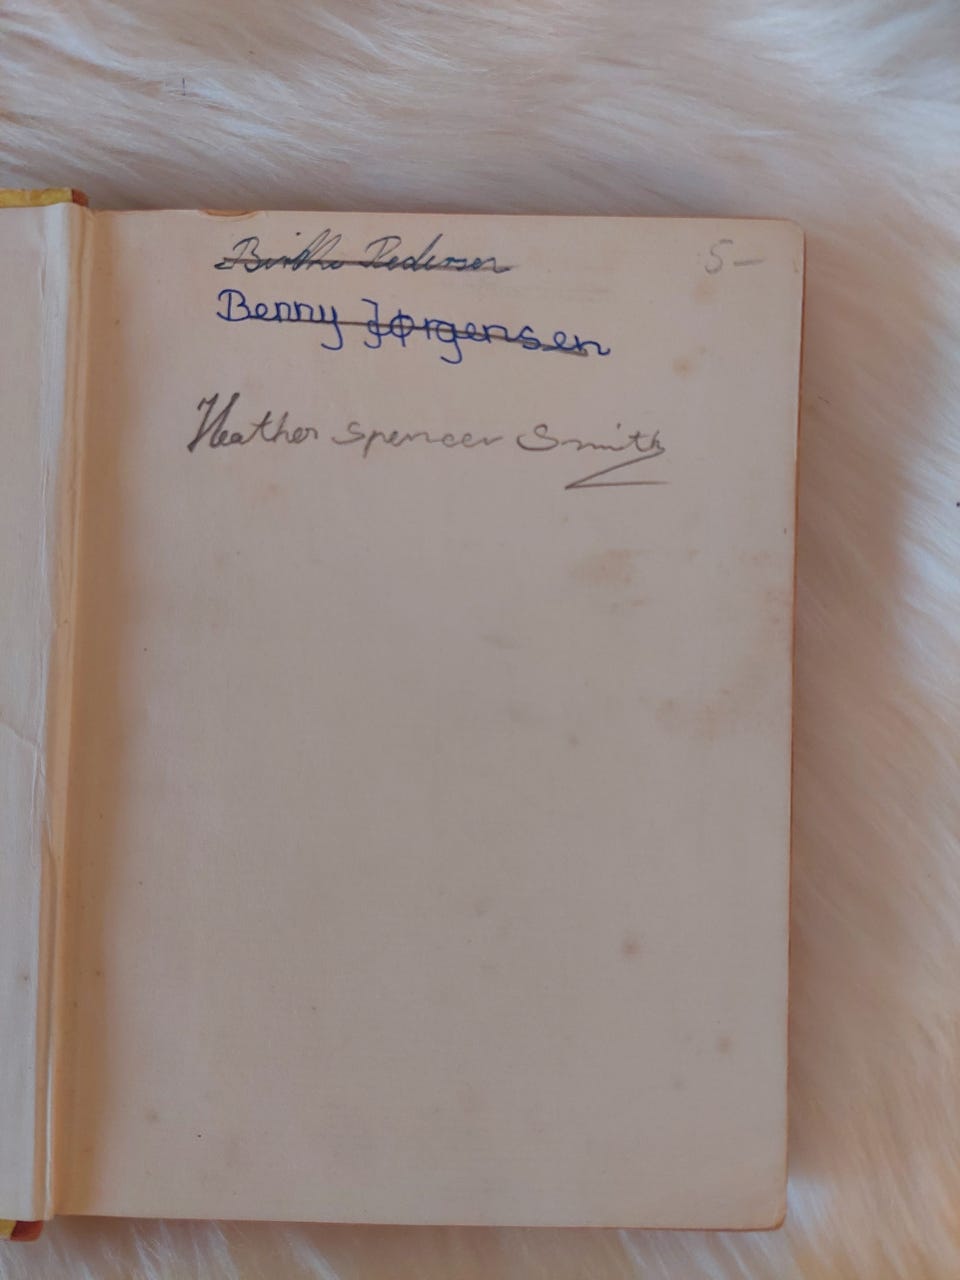 Birthe Pedersen
5-
Benny Jørgensen
Heather Spencer Smith